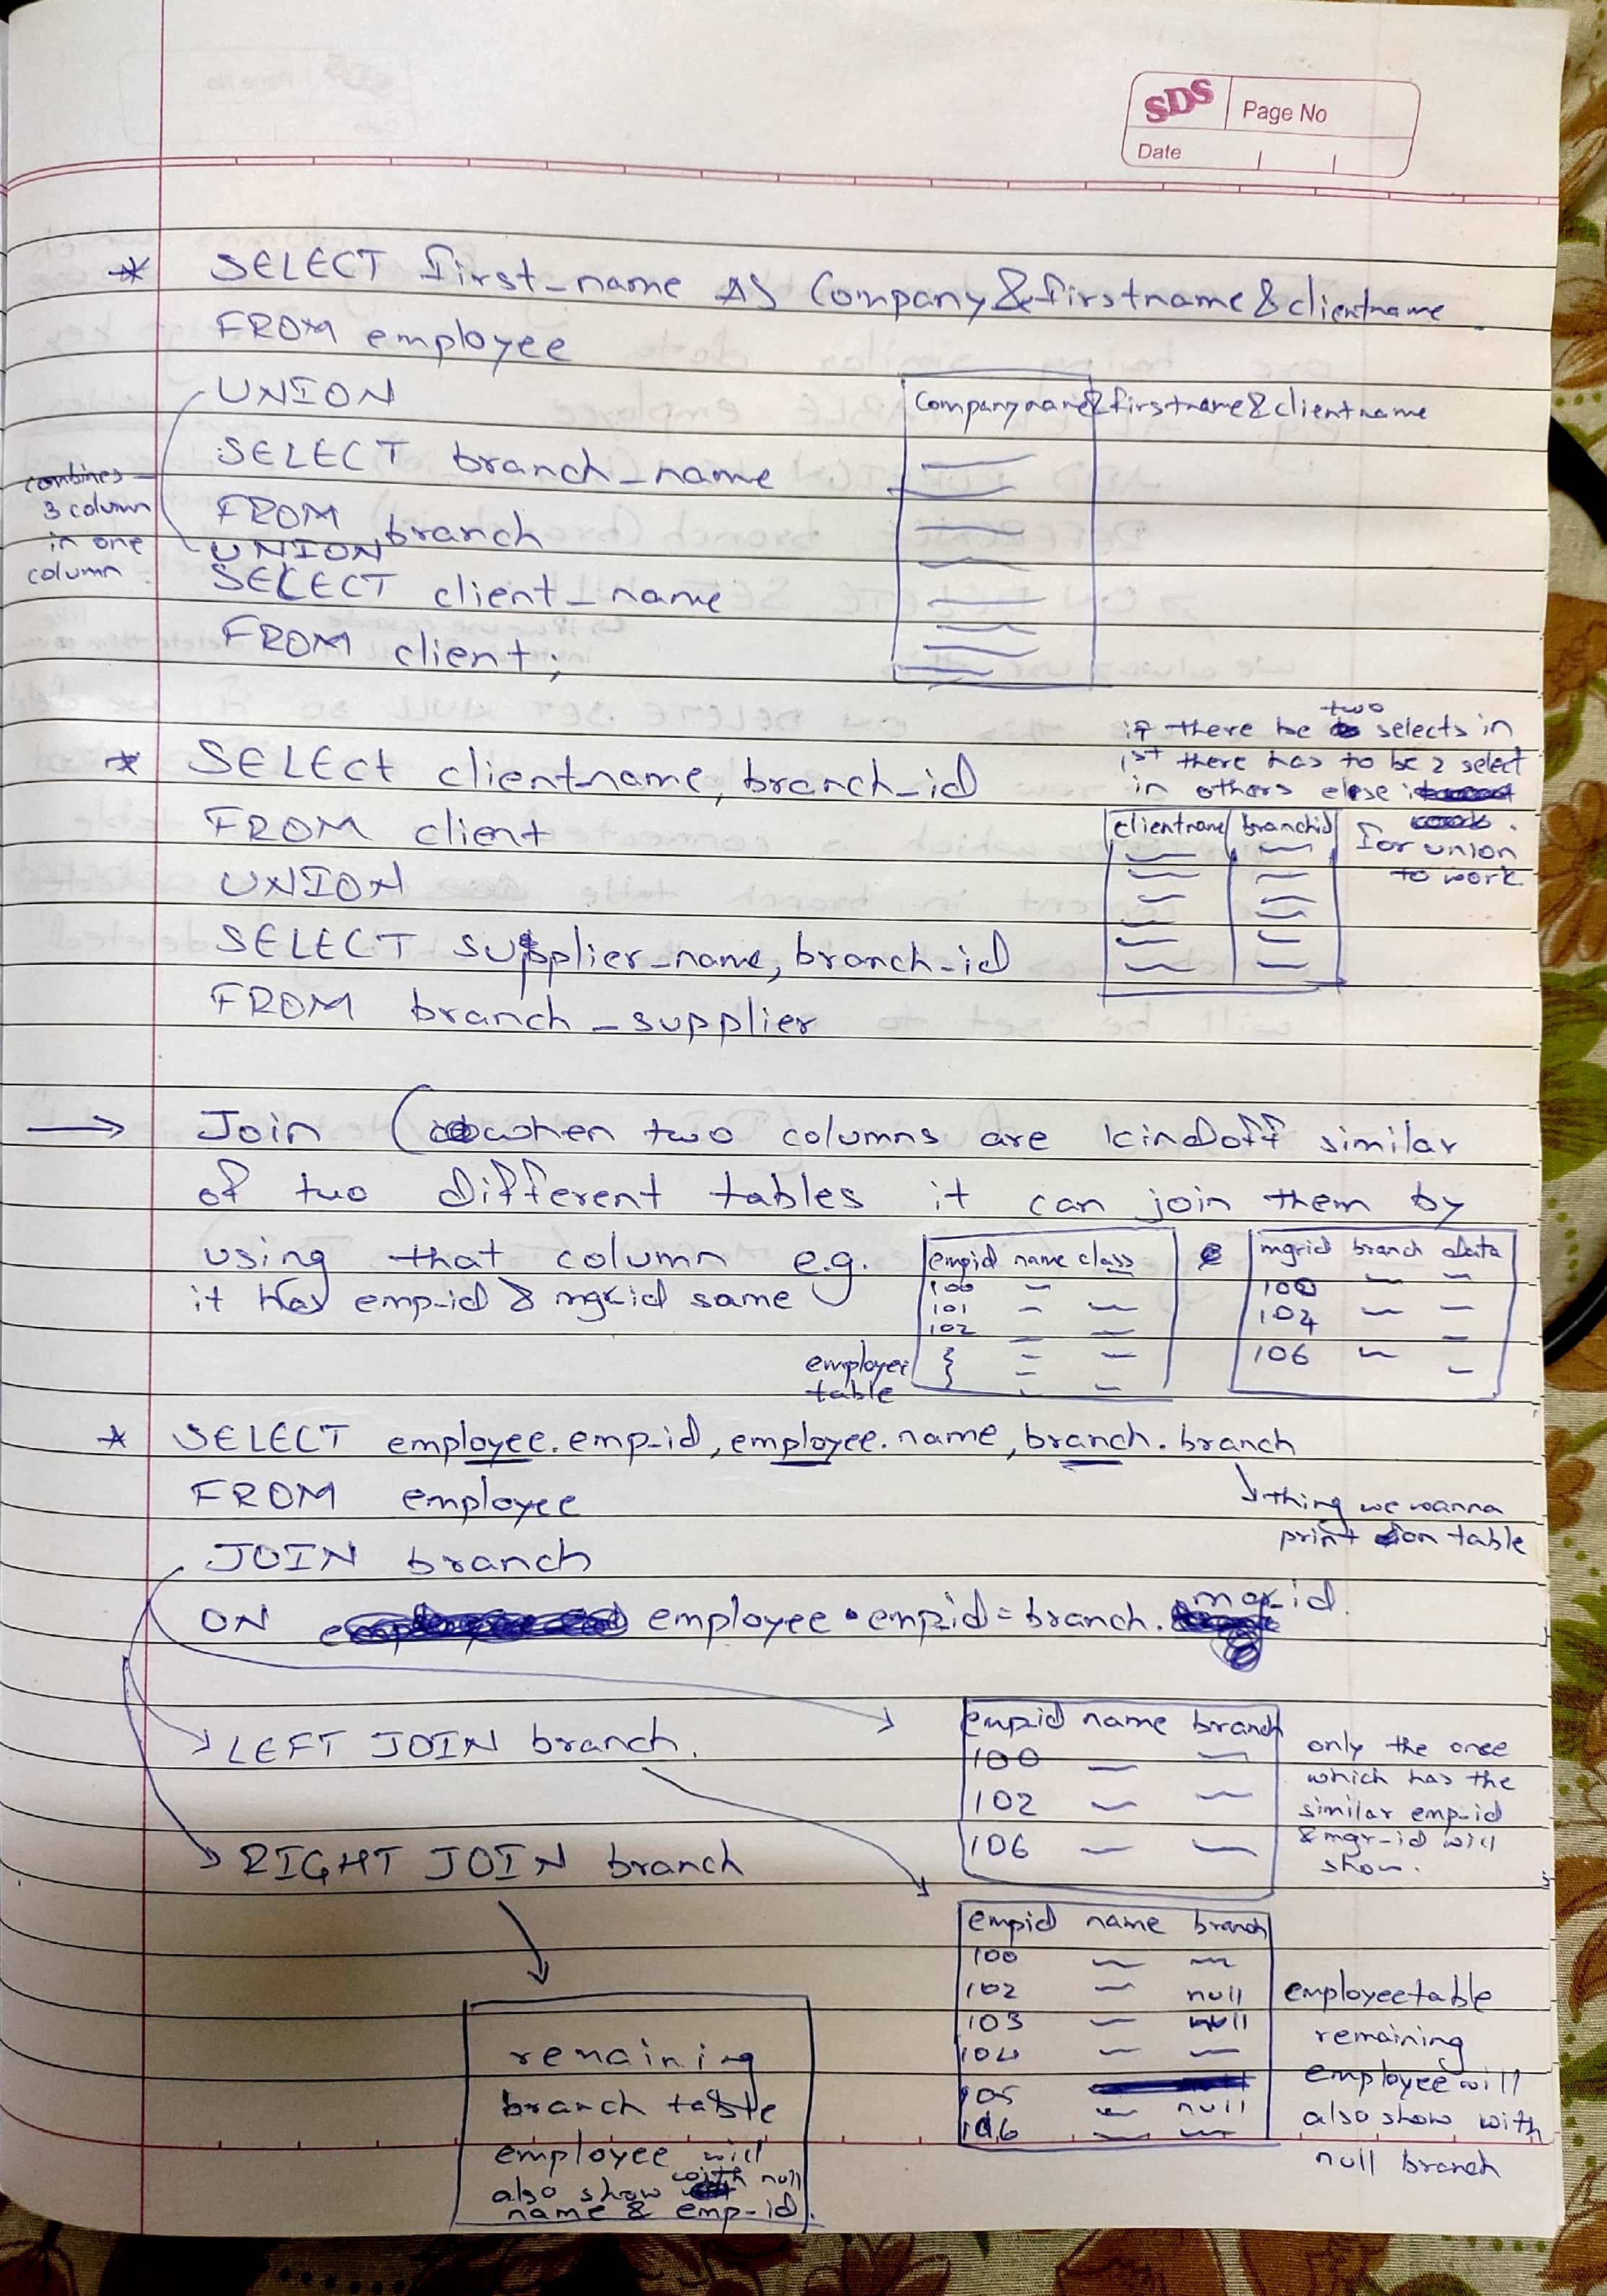 SDS Page No
Date
* SELECT first_name AS Company&firstname&clientname
FROM employee
UNION
SELECT branch_name
FROM branch
UNION
SELECT client_name
FROM client;
combines
3 column
in one
column
Companyname&firstname&clientname
* SELECt clientname, branch_id
FROM client
UNION
SELECT supplier_name, branch_id
FROM branch_supplier
if there be two selects in
1st there has to be 2 select
in others else
for union
to work.
clientname branchid
→ Join (when two columns are kindoff similar
of two different tables it can join them by
using that column e.g.
it has emp_id & mgrid same
empid name class
100
101
102
employee
table
mgrid branch data
100
104
106
* SELECT employee.emp_id, employee.name, branch.branch
FROM employee
thing we wanna
print on table
JOIN branch
ON employee.empid = branch.mgrid.
LEFT JOIN branch.
RIGHT JOIN branch
empid name branch
100
102
106
only the once
which has the
similar emp_id
& mgr_id will
show.
empid name branch
100
102 null
103 null
104
105 null
106
employeetable
remaining
employee will
also show with
null branch
remaining
branch table
employee will
also show with null
name & emp_id.